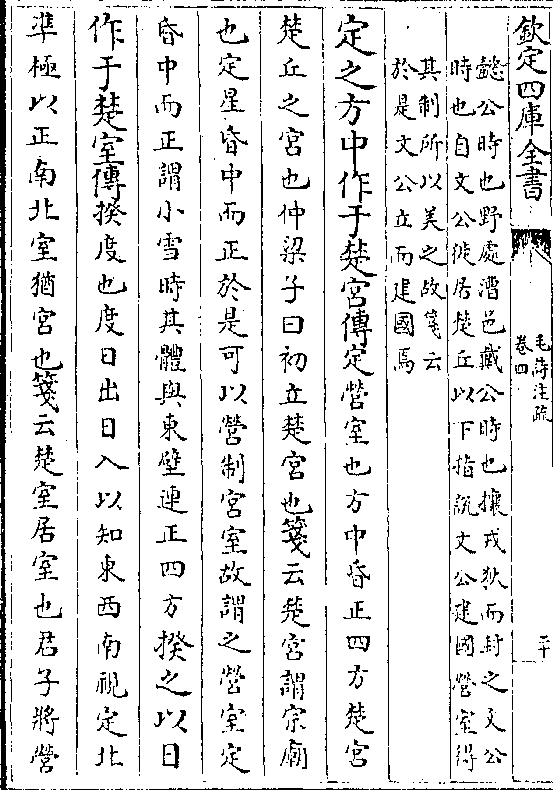 欽定四庫全書
毛詩注疏
卷四
二十
懿公時也野處漕邑戴公時也攘戎狄而封之文公
時也自文公徙居楚丘以下指說文公建國營室得
其制所以美之故箋云
於是文公立而建國焉
定之方中作于楚宮傳定營室也方中昏正四方楚宮
楚丘之宮也仲梁子曰初立楚宮也箋云楚宮謂宗廟
也定星昏中而正於是可以營制宮室故謂之營室定
昏中而正謂小雪時其體與東壁連正四方揆之以日
作于楚室傳揆度也度日出日入以知東西南視定北
準極以正南北室猶宮也箋云楚室居室也君子將營